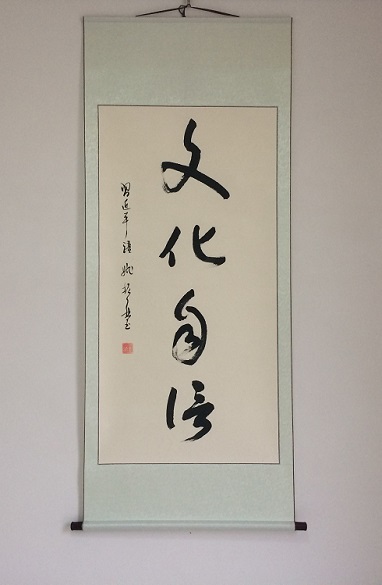 文化自信
习近平语